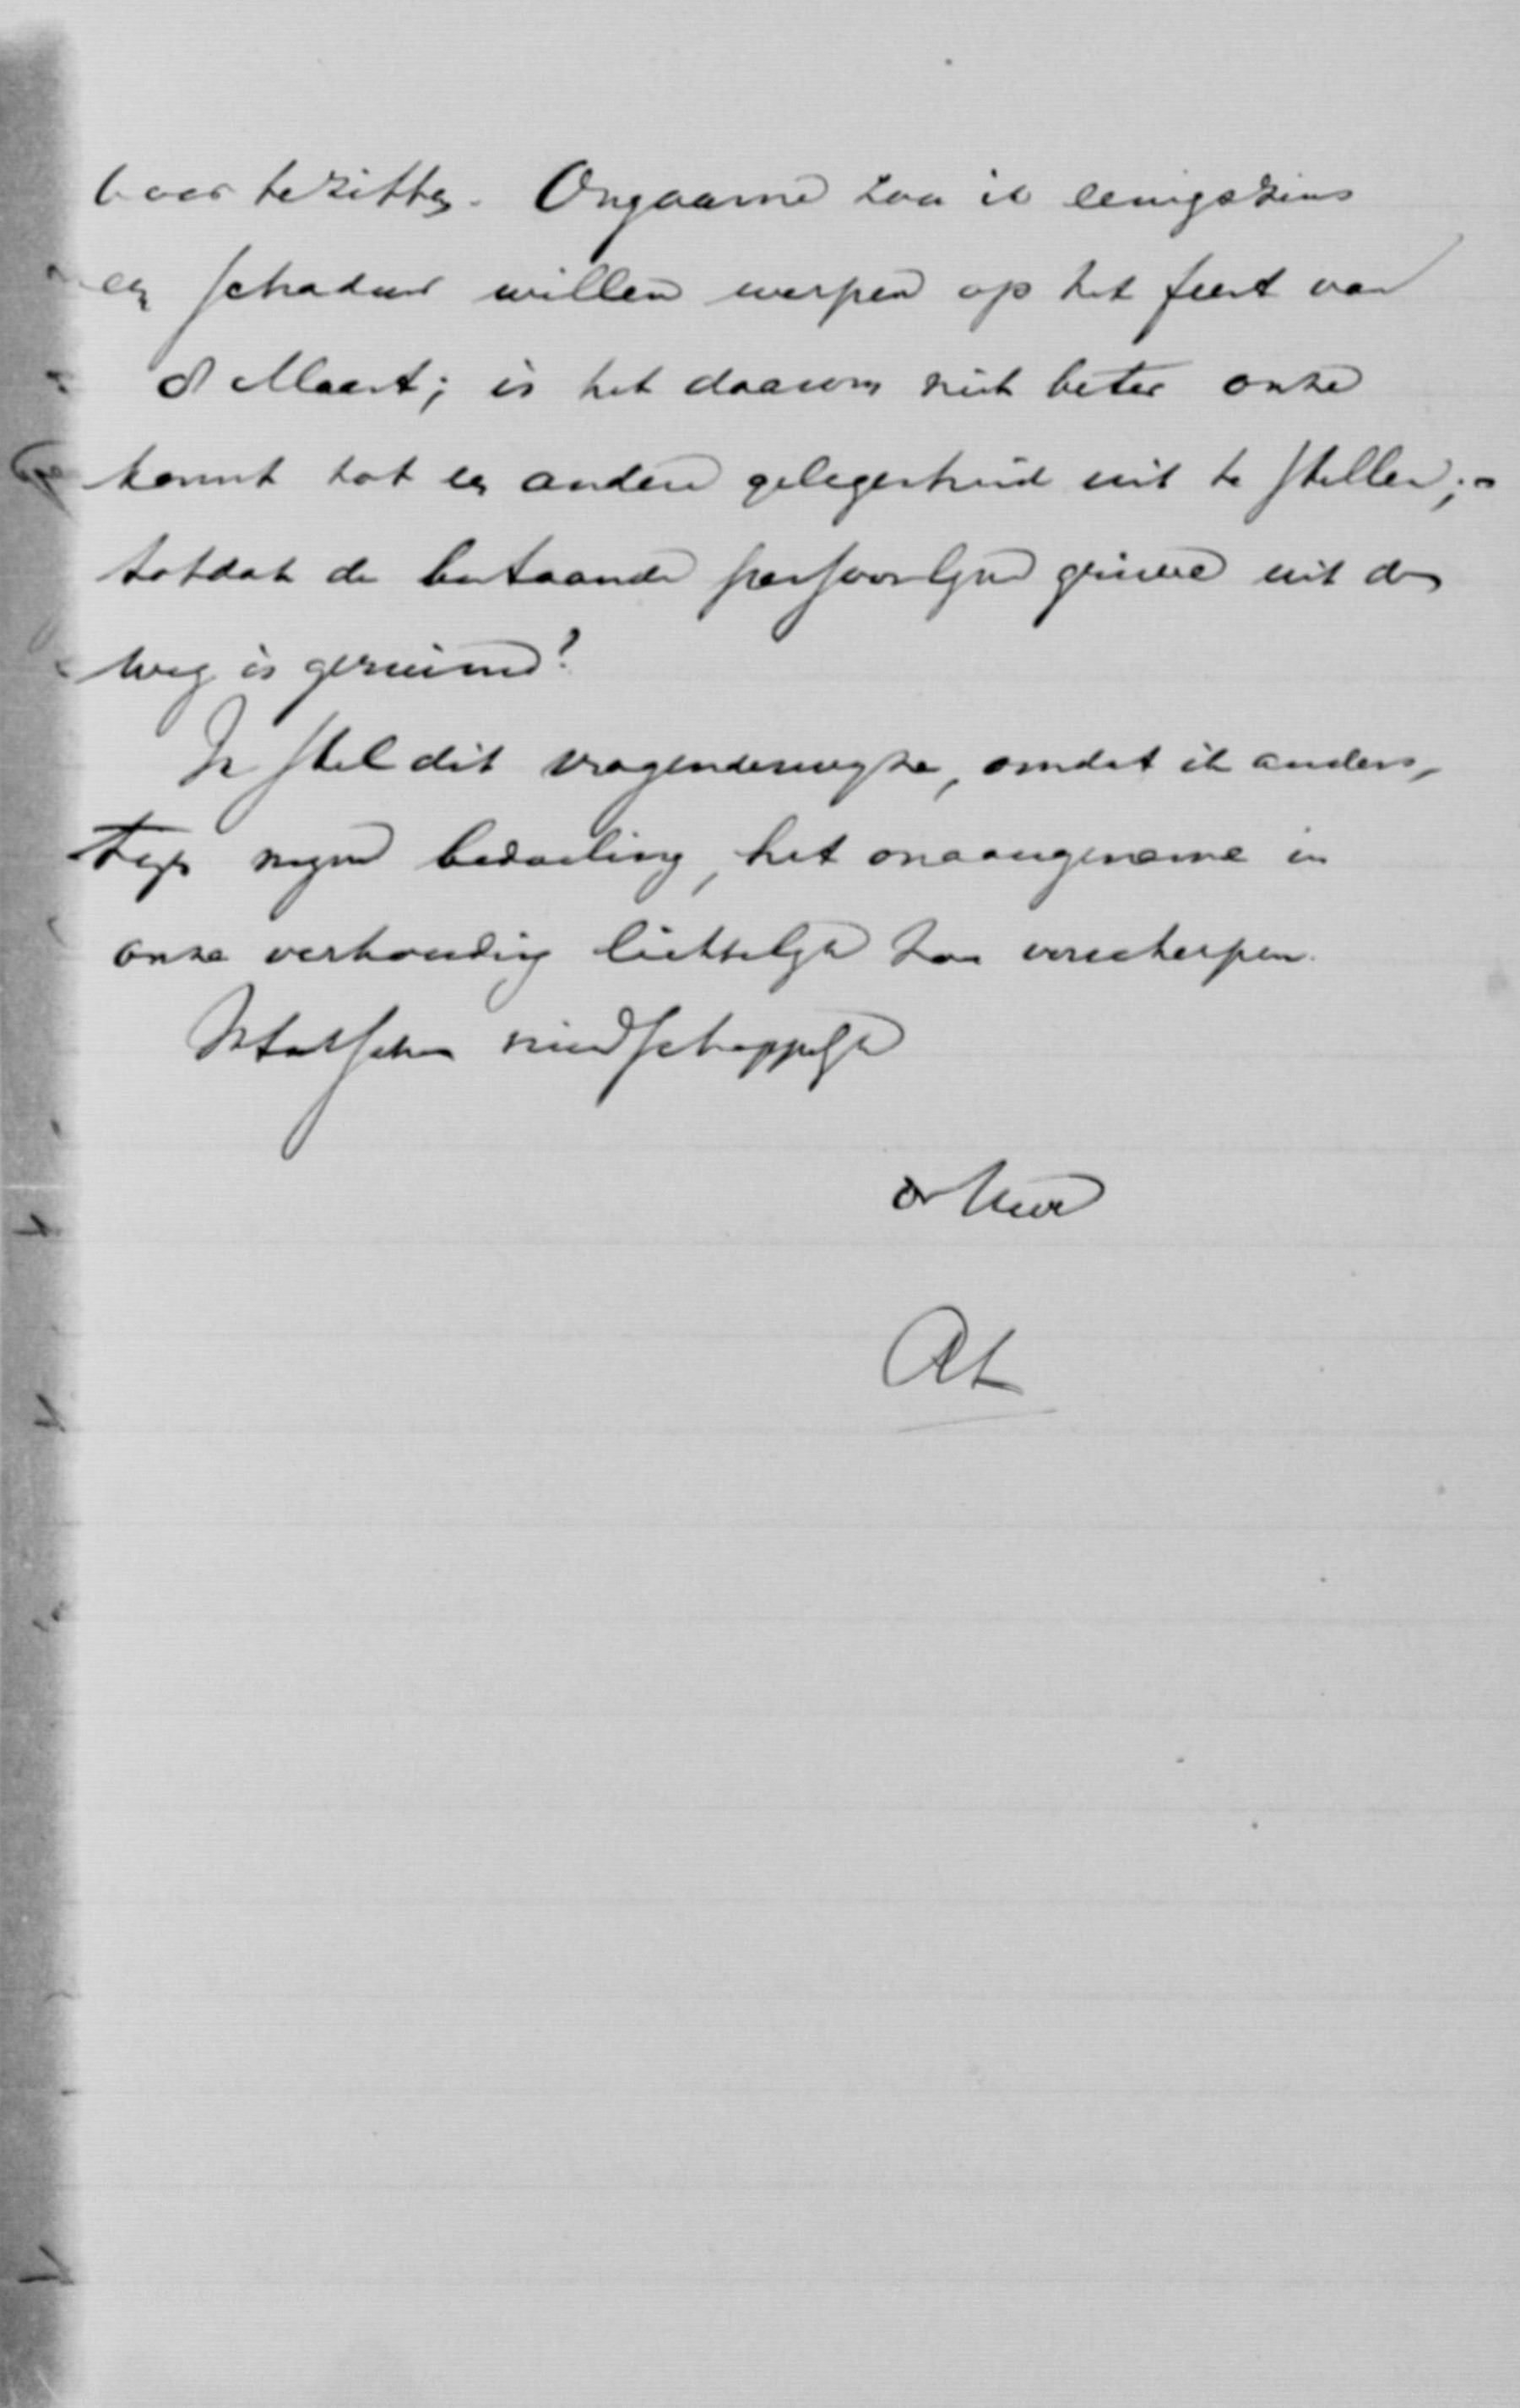 voor te zitten. Ongaarne zou ik eenigszins
een schaduw willen werpen op het feest van
8 Maart; is het daarom niet beter onze
komst tot een andere gelegenheid uit te stellen;
totdat de bestaande persoonlijke grieve uit den
weg is geruimd?
Ik stel dit vragenderwijze, omdat ik anders,
tegen mijne bedoeling, het onaangename in
onze verhouding lichtelijk zou verscherpen.
Intusschen vriendschappelijk
de Uwe